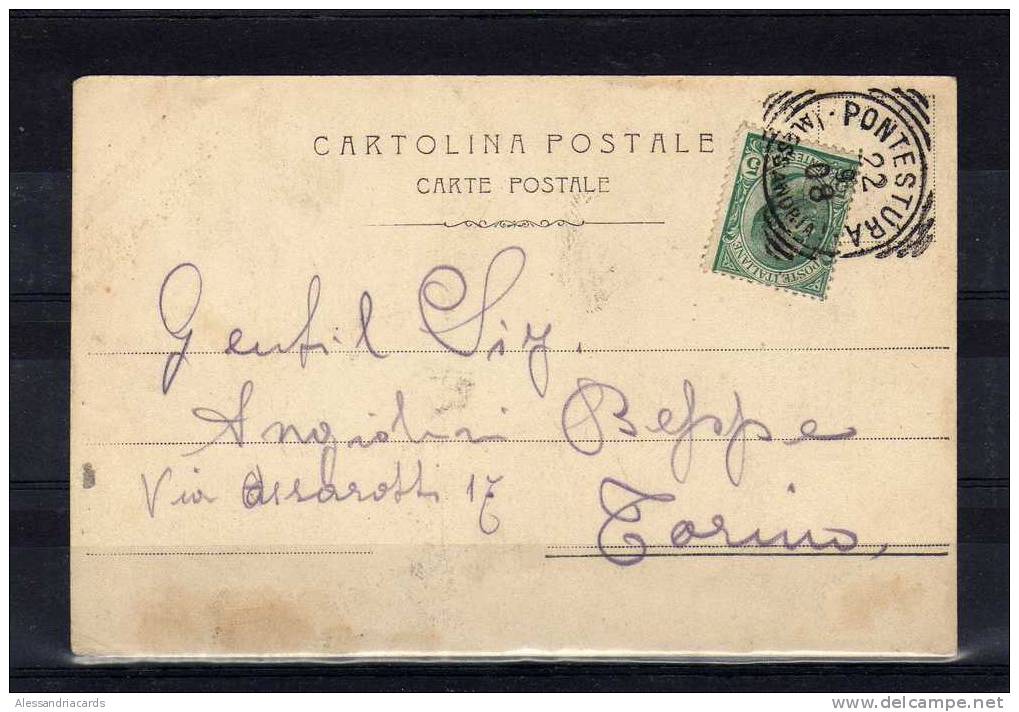 CARTOLINA POSTALE
CARTE POSTALE
PONTESTURA
(ALESSANDRIA)
22
08
5
POSTE ITALIANE
Gentil Sig.
Angiolini Beppe
Via Assarotti 17
Torino,
Alessandriacards
delcampe.net